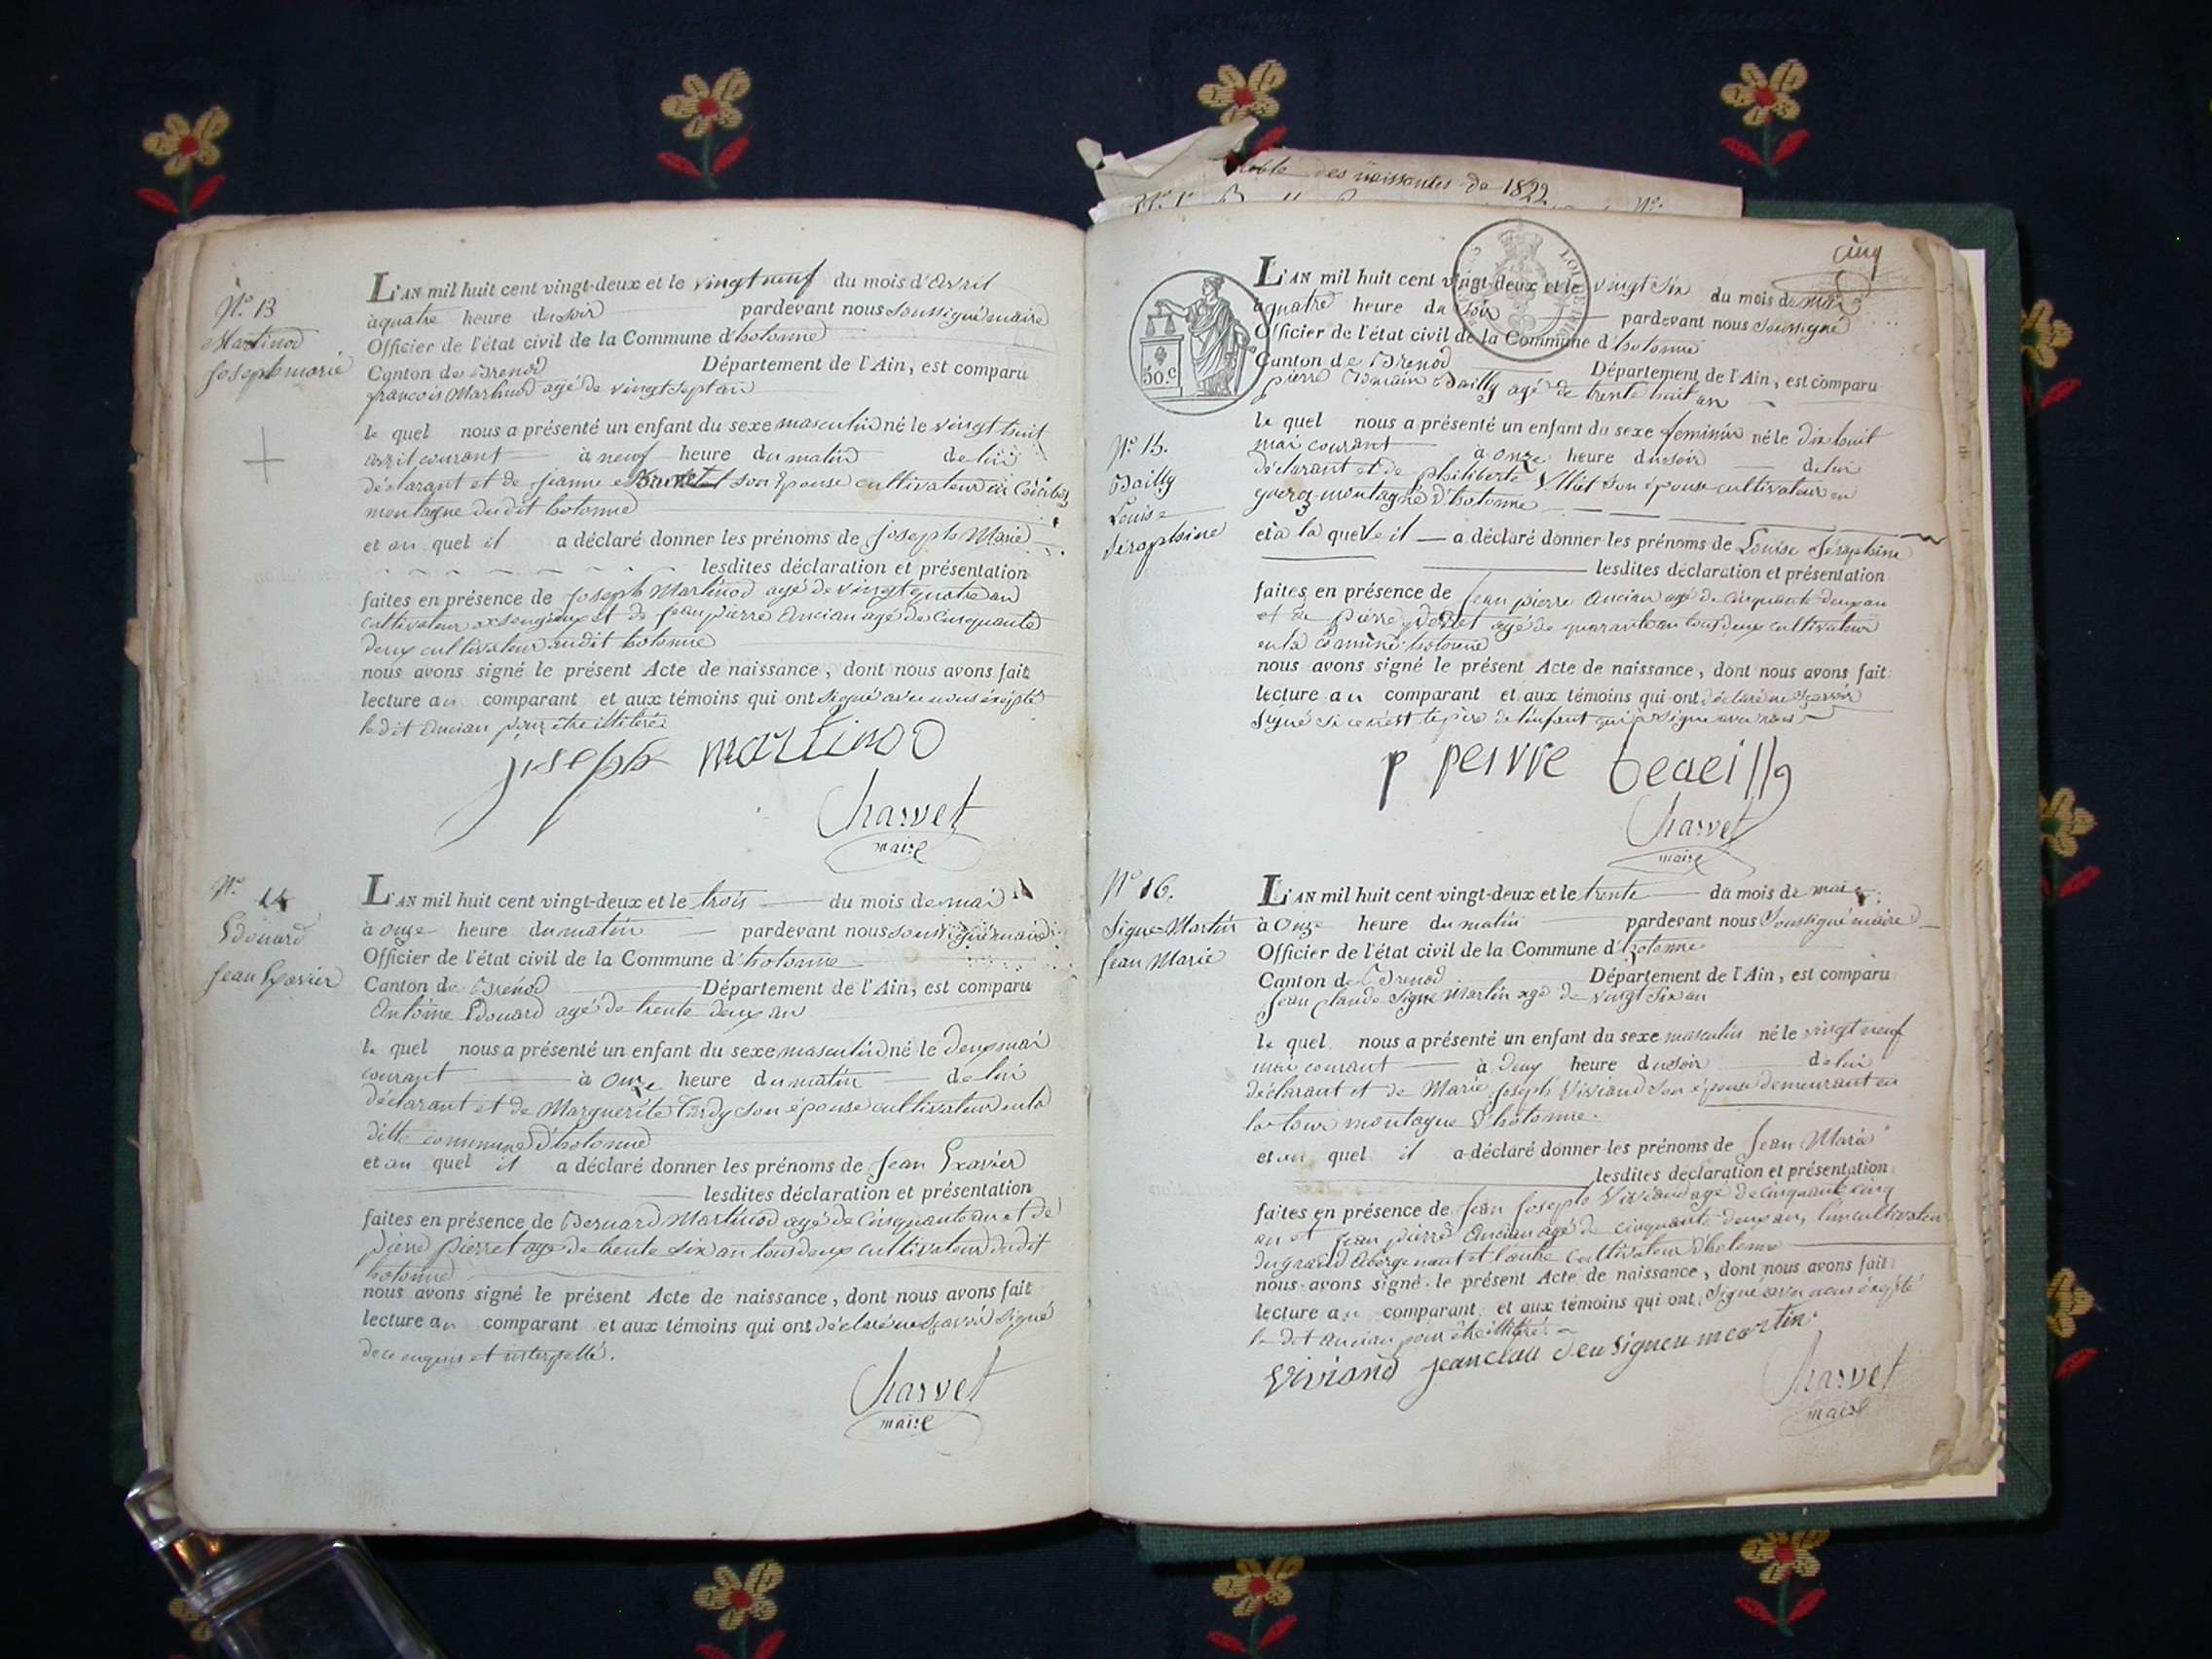 table des naissantes de 1822
N.° 13
Martinod
joseph marie
L'AN mil huit cent vingt-deux et le vingt neuf du mois d'avril
à quatre heure du soir pardevant nous soussigné maire
Officier de l'état civil de la Commune d'hotonne
Canton de Brenod Département de l'Ain, est comparu
francois Martinod agé de vingt sept an
le quel nous a présenté un enfant du sexe masculin né le vingt huit
avril courant à neuf heure du matin de lui
déclarant et de jeanne son épouse cultivateur
montagne dudit hotonne
et au quel il a déclaré donner les prénoms de joseph Marie
lesdites déclaration et présentation
faites en présence de joseph Martinod agé de vingt quatre an
cultivateur et de jean pierre Ancian agé de Cinquante
deux cultivateur audit hotonne
nous avons signé le présent Acte de naissance, dont nous avons fait
lecture au comparant et aux témoins qui ont signé avec nous éxépté
le dit Ancian pour être illitéré
joseph martinod
Charvet
maire
N.° 14
Edouard
Jean Exavier
L'AN mil huit cent vingt-deux et le trois du mois de mai
à onze heure du matin pardevant nous soussigné maire
Officier de l'état civil de la Commune d'hotonne
Canton de Brénod Département de l'Ain, est comparu
Antoine Edouard agé de trente deux an
le quel nous a présenté un enfant du sexe masculin né le deux mai
courant à onze heure du matin de lui
déclarant et de Marguerite tardy son épouse cultivateur en la
ditte commune d'hotonne
et au quel il a déclaré donner les prénoms de Jean Exavier
lesdites déclaration et présentation
faites en présence de Bernard Martinod agé de Cinquante an et de
pierre pierret agé de trente six an tous deux cultivateur dudit
hotonne
nous avons signé le présent Acte de naissance, dont nous avons fait
lecture au comparant et aux témoins qui ont déclaré ne sçavoir signé
de ce enquis et interpellé.
Charvet
maire
cinq
50.c
N.° 15.
Bailly
Louise
Séraphine
L'AN mil huit cent vingt-deux et le vingt six du mois de mai
à quatre heure du soir pardevant nous soussigné
Officier de l'état civil de la Commune d'hotonne
Canton de Brenod Département de l'Ain, est comparu
pierre Bailly agé de trente huit an
le quel nous a présenté un enfant du sexe feminin né le dix huit
mai courant à onze heure du soir de lui
déclarant et de philiberte son épouse cultivateur en
montagne d'hotonne
et à la quelle il a déclaré donner les prénoms de Louise Séraphine
lesdites déclaration et présentation
faites en présence de Jean pierre Ancian agé de cinquante deux an
et de pierre agé de quarante an tous deux cultivateur
en la commune hotonne
nous avons signé le présent Acte de naissance, dont nous avons fait
lecture au comparant et aux témoins qui ont déclaré ne sçavoir
signé si ce n'est le père de l'enfant qui a signé avec nous
p peivre beaeilly
Charvet
maire
N° 16.
Signe-Martin
Jean Marie
L'AN mil huit cent vingt-deux et le trente du mois de mai
à onze heure du matin pardevant nous soussigné maire
Officier de l'état civil de la Commune d'hotonne
Canton de Brenod Département de l'Ain, est comparu
Jean Claude Signe Martin agé de vingt six an
le quel nous a présenté un enfant du sexe masculin né le vingt neuf
mai courant à deux heure du soir de lui
déclarant et de Marie joseph Viviand son épouse demeurant en
la tour montagne d'hotonne.
et au quel il a déclaré donner les prénoms de Jean Marie
lesdites déclaration et présentation
faites en présence de Jean Joseph Viviand agé de cinquante cinq
an et jean pierre Ancian agé de cinquante deux an, l'un cultivateur
du grand abergement et l'autre cultivateur d'hotonne
nous avons signé le présent Acte de naissance, dont nous avons fait
lecture au comparant et aux témoins qui ont signé avec nous éxépté
le dit Ancian pour être illitéré.
Viviand jean clau deu signeu martin
Charvet
maire